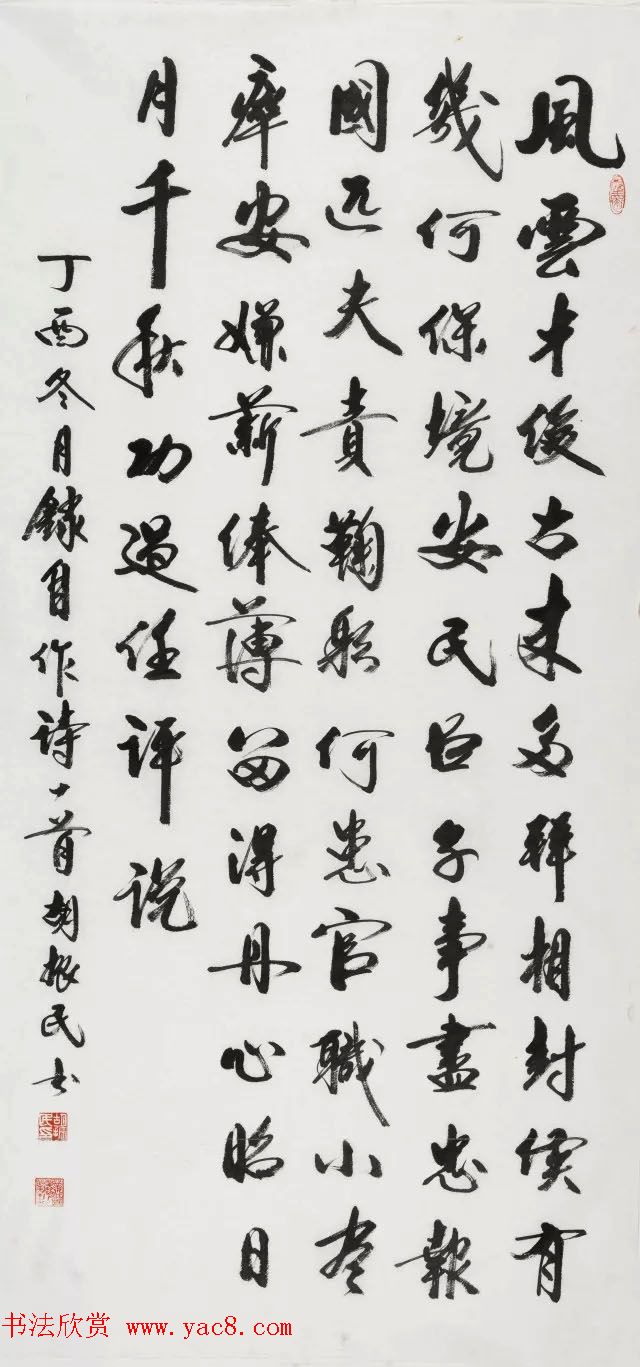 風雲才俊古来多拜相封侯有
幾何保境安民臣子事盡忠報
國匹夫責鞠躬何患官職小尽
瘁安嫌薪俸薄留得丹心昭日
月千秋功過任評説
丁酉冬月録自作詩一首胡振民书
书法欣赏 www.yac8.com